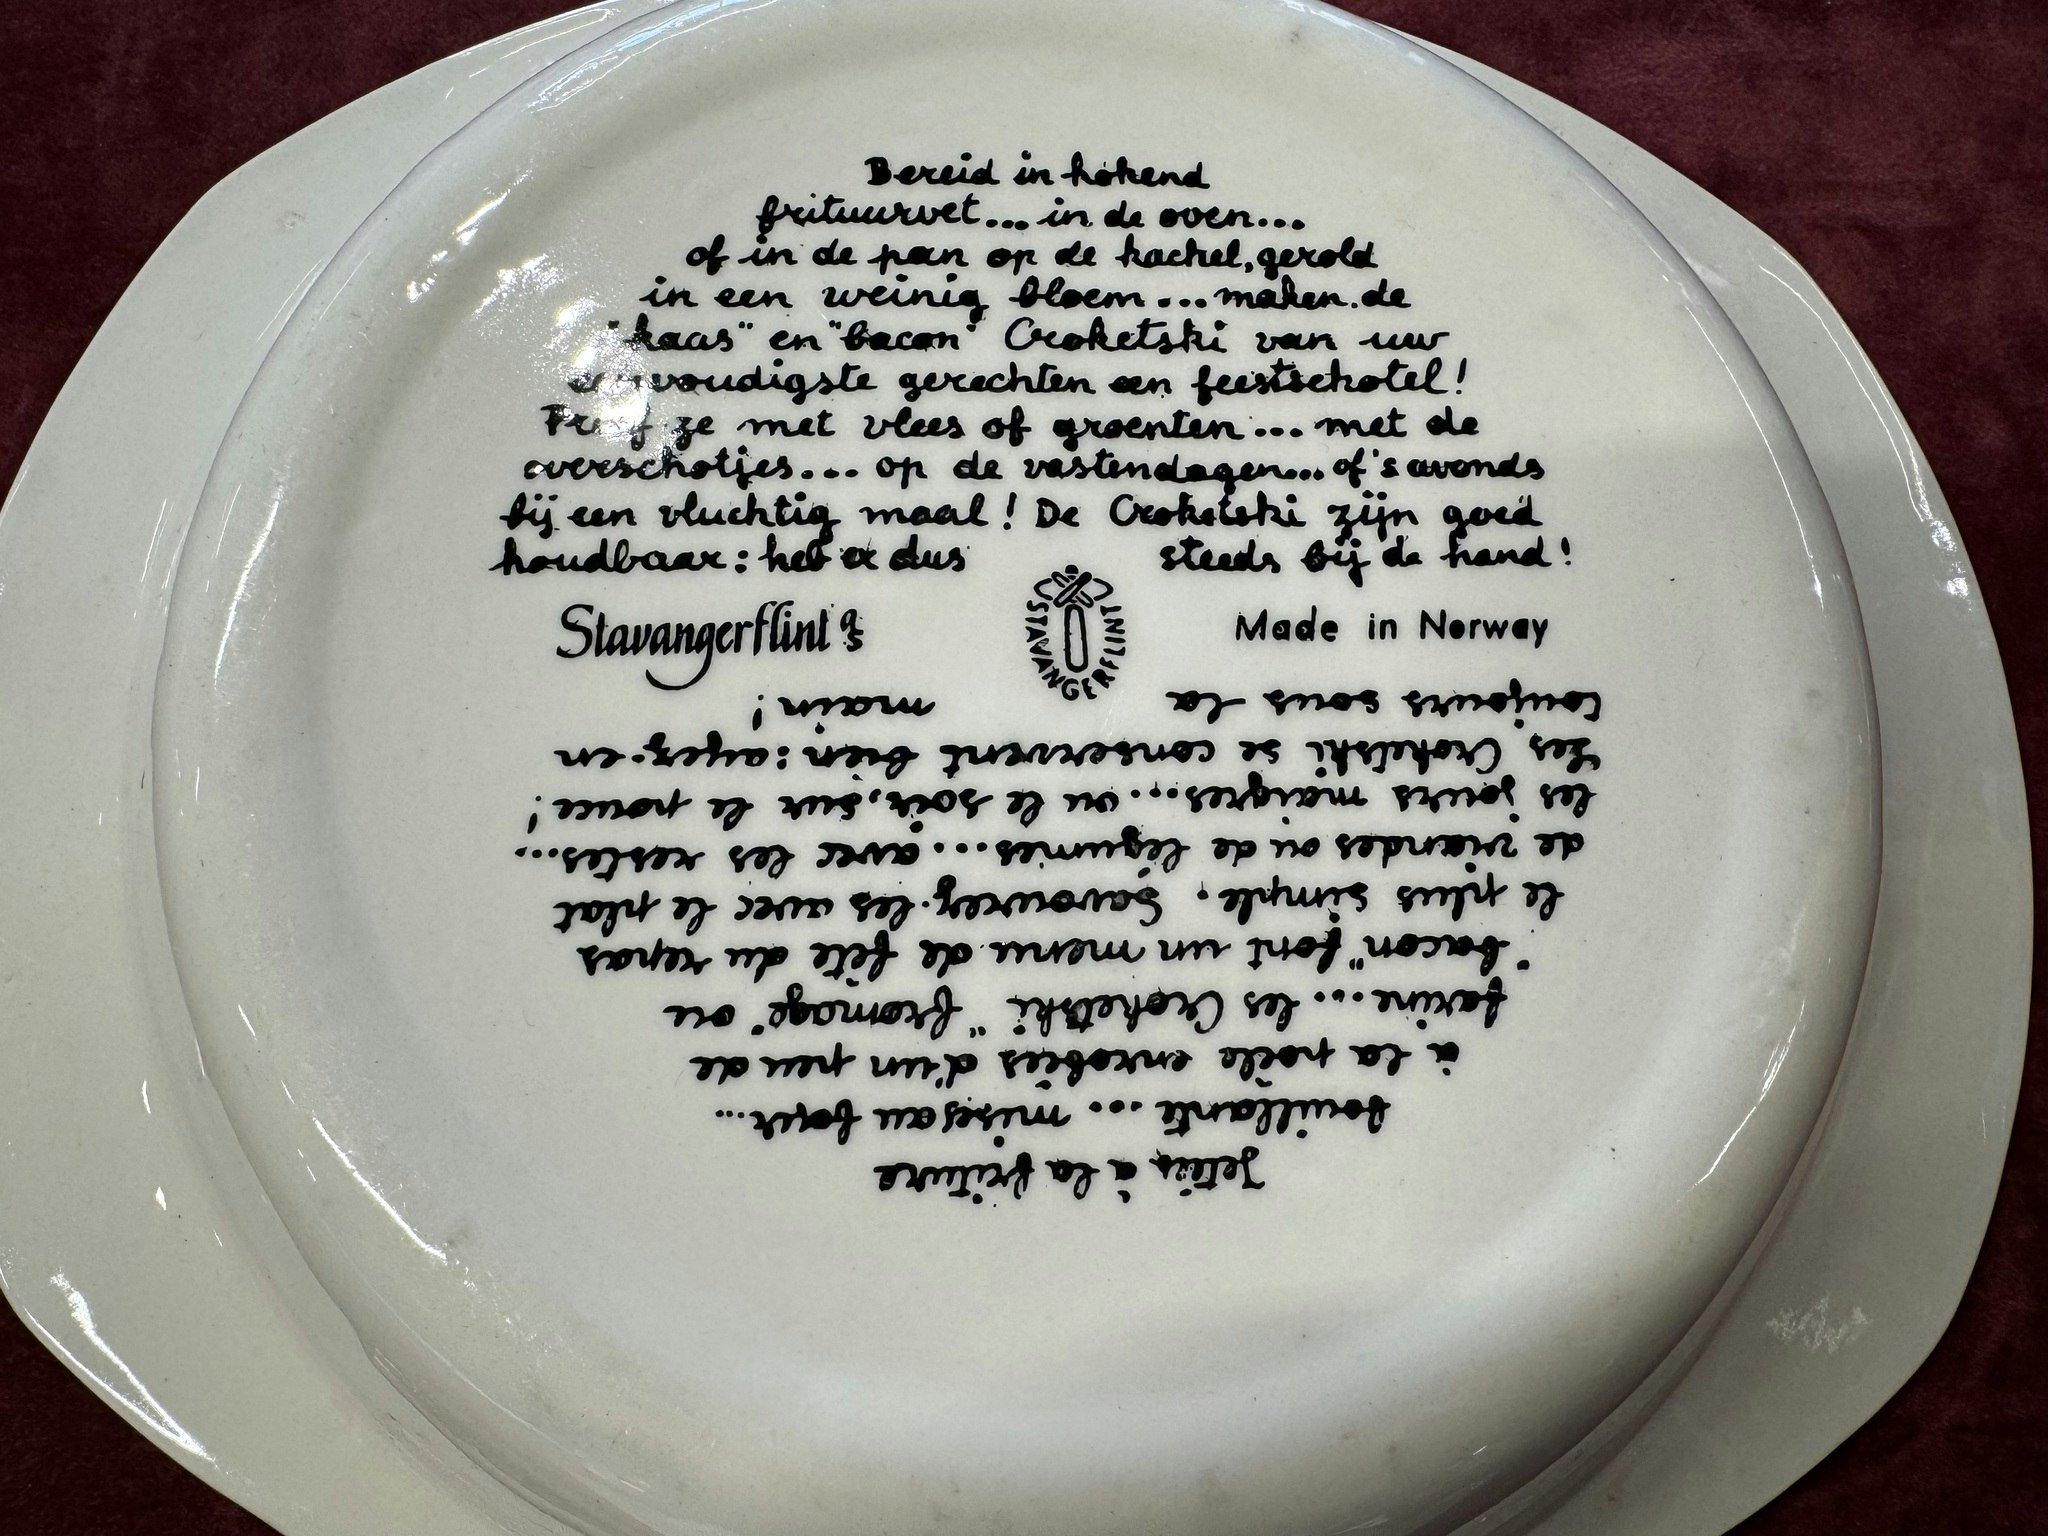 Bereid in kokend
frituurvet... in de oven...
of in de pan op de kachel, gerold
in een weinig bloem... maken de
"kaas" en "bacon" Croketski van uw
eenvoudigste gerechten een feestschotel!
Proef ze met vlees of groenten... met de
overschotjes... op de vastendagen... of 's avonds
bij een vluchtig maal! De Croketski zijn goed
houdbaar: heb er dus steeds bij de hand!
Stavangerflint AS
STAVANGERFLINT
Made in Norway
Jetés à la friture
bouillante... mises au four...
à la poêle enrobées d'un peu de
farine... les Croketski "fromage" ou
"bacon" font un menu de fête du repas
le plus simple. Savourez-les avec le plat
de viandes ou de légumes... avec les restes...
les jours maigres... ou le soir, sur le pouce!
Les Croketski se conservent bien: ayez-en
toujours sous la main!